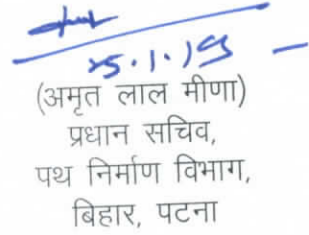 25.1.19
(अमृत लाल मीणा)
प्रधान सचिव,
पथ निर्माण विभाग,
बिहार, पटना